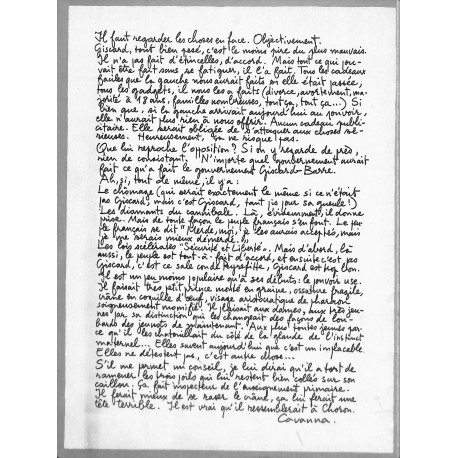 Il faut regarder les choses en face. Objectivement.
Giscard, tout bien pesé, c'est le moins pire du plus mauvais.
Il n'a pas fait d'étincelles, d'accord. Mais tout ce qui pou-
vait être fait sans se fatiguer, il l'a fait. Tous les cadeaux
faciles que la gauche nous aurait faits si elle était passée,
tous les gadgets, il nous les a faits (divorce, avortement, ma-
jorité à 18 ans, familles nombreuses, tout ça, tout ça...) Si
bien que, si la gauche arrivait aujourd'hui au pouvoir,
elle n'aurait plus rien à nous offrir. Aucun cadeau publi-
citaire. Elle serait obligée de s'attaquer aux choses sé-
rieuses. Heureusement, ça ne risque pas.
Que lui reproche l'opposition? Si on y regarde de près,
rien de consistant. N'importe quel gouvernement aurait
fait ce qu'a fait le gouvernement Giscard-Barre.
Ah, si, tout de même, il y a:
Le chômage (qui serait exactement le même si ce n'était
pas Giscard, mais c'est Giscard, tant pis pour sa gueule!)
Les diamants du cannibale. Là, évidemment, il donne
prise. Mais de toute façon le peuple français s'en fout. Le peu-
ple français se dit "Merde, moi, je les aurais acceptés, mais
je me serais mieux démerdé."
Les lois scélérates "Sécurité et Liberté". Mais d'abord, là
aussi, le peuple est tout-à-fait d'accord, et ensuite c'est pas
Giscard, c'est ce sale con de Peyrefitte, Giscard est trop bon.
Il est un peu moins populaire qu'à ses débuts: le pouvoir use.
Il faisait très petit prince monté en graine, ossature fragile,
crâne en coquille d'œuf, visage aristocratique de pharaon
soigneusement momifié. Il plaisait aux dames, aux très jeu-
nes par sa distinction qui les changeait des façons de lou-
bards des jeunots de maintenant. Aux plus toutes jeunes par-
ce qu'il les chatouillait du côté de la glande de l'instinct
maternel... Elles savent aujourd'hui que c'est un implacable.
Elles ne détestent pas, c'est autre chose...
S'il me permet un conseil, je lui dirai qu'il a tort de
ramener les trois poils qui lui restent bien collés sur son
caillou. Ça fait inspecteur de l'enseignement primaire.
Il ferait mieux de se raser le crâne, ça lui ferait une
tête terrible. Il est vrai qu'il ressemblerait à Choron.
Cavanna.